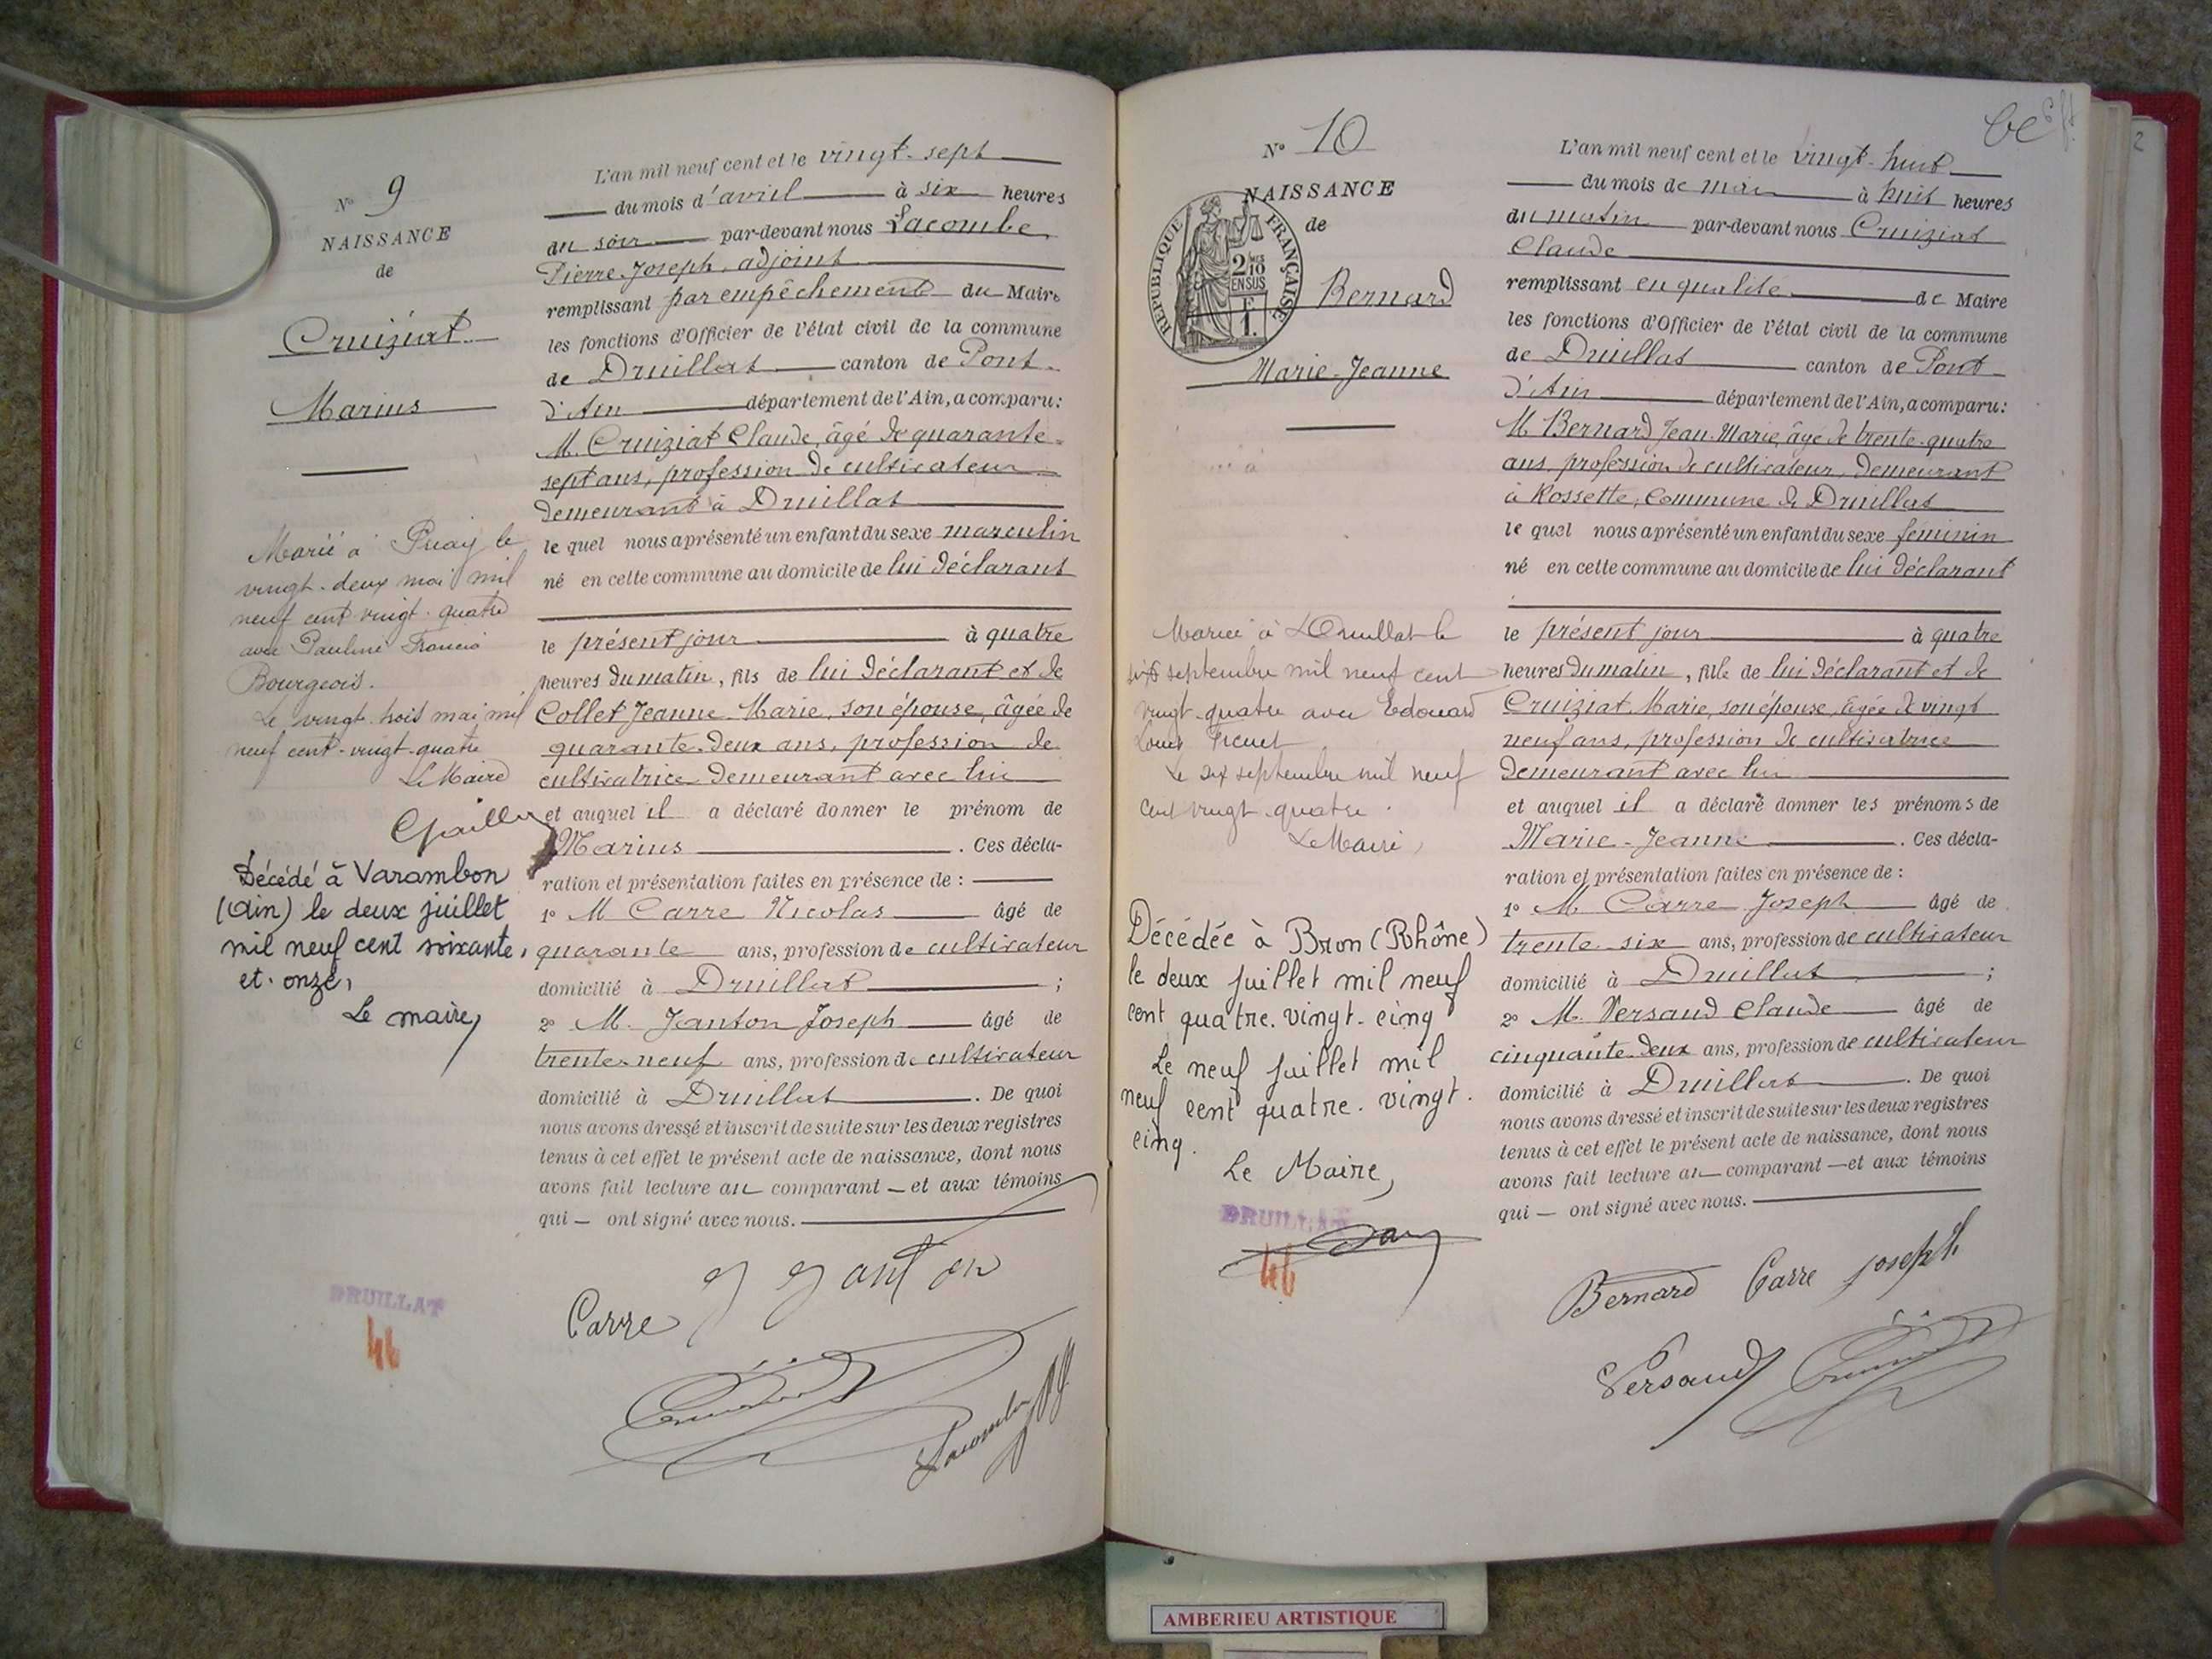 N° 9
NAISSANCE
de
Cruiziat
Marius
Marié à Priay le
vingt-deux mai mil
neuf cent vingt-quatre
avec Pauline Francia
Bourgeois.
Le vingt trois mai mil
neuf cent-vingt-quatre
Le Maire
Décédé à Varambon
(Ain) le deux juillet
mil neuf cent soixante
et onze,
Le maire,
DRUILLAT
46
L'an mil neuf cent et le vingt-sept
du mois d'avril à six heures
du soir par-devant nous Lacombe
Pierre Joseph, adjoint
remplissant par empêchement du Maire
les fonctions d'Officier de l'état civil de la commune
de Druillat canton de Pont-
d'Ain département de l'Ain, a comparu:
M. Cruiziat Claude, âgé de quarante-
sept ans, profession de cultivateur
demeurant à Druillat
le quel nous a présenté un enfant du sexe masculin
né en cette commune au domicile de lui déclarant
le présent jour à quatre
heures du matin, fils de lui déclarant et de
Collet Jeanne Marie, son épouse, âgée de
quarante-deux ans, profession de
cultivatrice demeurant avec lui
et auquel il a déclaré donner le prénom de
Marius. Ces décla-
ration et présentation faites en présence de :
1° M Carre Nicolas âgé de
quarante ans, profession de cultivateur
domicilié à Druillat ;
2° M. Janton Joseph âgé de
trente-neuf ans, profession de cultivateur
domicilié à Druillat. De quoi
nous avons dressé et inscrit de suite sur les deux registres
tenus à cet effet le présent acte de naissance, dont nous
avons fait lecture au comparant et aux témoins
qui ont signé avec nous.
Carre J Janton
Cruiziat
Lacombe
N° 10
NAISSANCE
de
RÉPUBLIQUE FRANÇAISE
2/10
EN SUS
F
1.
Bernard
Marie-Jeanne
Mariée à Druillat le
six septembre mil neuf cent
vingt-quatre avec Edouard
Louis
Le dix septembre mil neuf
cent vingt-quatre.
Le Maire,
Décédée à Bron (Rhône)
le deux juillet mil neuf
cent quatre-vingt-cinq
Le neuf juillet mil
neuf cent quatre-vingt-
cinq.
Le Maire,
DRUILLAT
46
L'an mil neuf cent et le vingt-huit
du mois de mai à huit heures
du matin par-devant nous Cruiziat
Claude
remplissant en qualité de Maire
les fonctions d'Officier de l'état civil de la commune
de Druillat canton de Pont-
d'Ain département de l'Ain, a comparu:
M Bernard Jean-Marie, âgé de trente-quatre
ans, profession de cultivateur, demeurant
à Rossette, Commune de Druillat
le quel nous a présenté un enfant du sexe féminin
né en cette commune au domicile de lui déclarant
le présent jour à quatre
heures du matin, fille de lui déclarant et de
Cruiziat Marie, son épouse, âgée de vingt
neuf ans, profession de cultivatrice
demeurant avec lui
et auquel il a déclaré donner les prénoms de
Marie-Jeanne. Ces décla-
ration et présentation faites en présence de :
1° M Carre Joseph âgé de
trente-six ans, profession de cultivateur
domicilié à Druillat ;
2° M. Versaud Claude âgé de
cinquante-deux ans, profession de cultivateur
domicilié à Druillat. De quoi
nous avons dressé et inscrit de suite sur les deux registres
tenus à cet effet le présent acte de naissance, dont nous
avons fait lecture au comparant et aux témoins
qui ont signé avec nous.
Bernard Carre Joseph
Versaud Cruiziat
2
AMBERIEU ARTISTIQUE